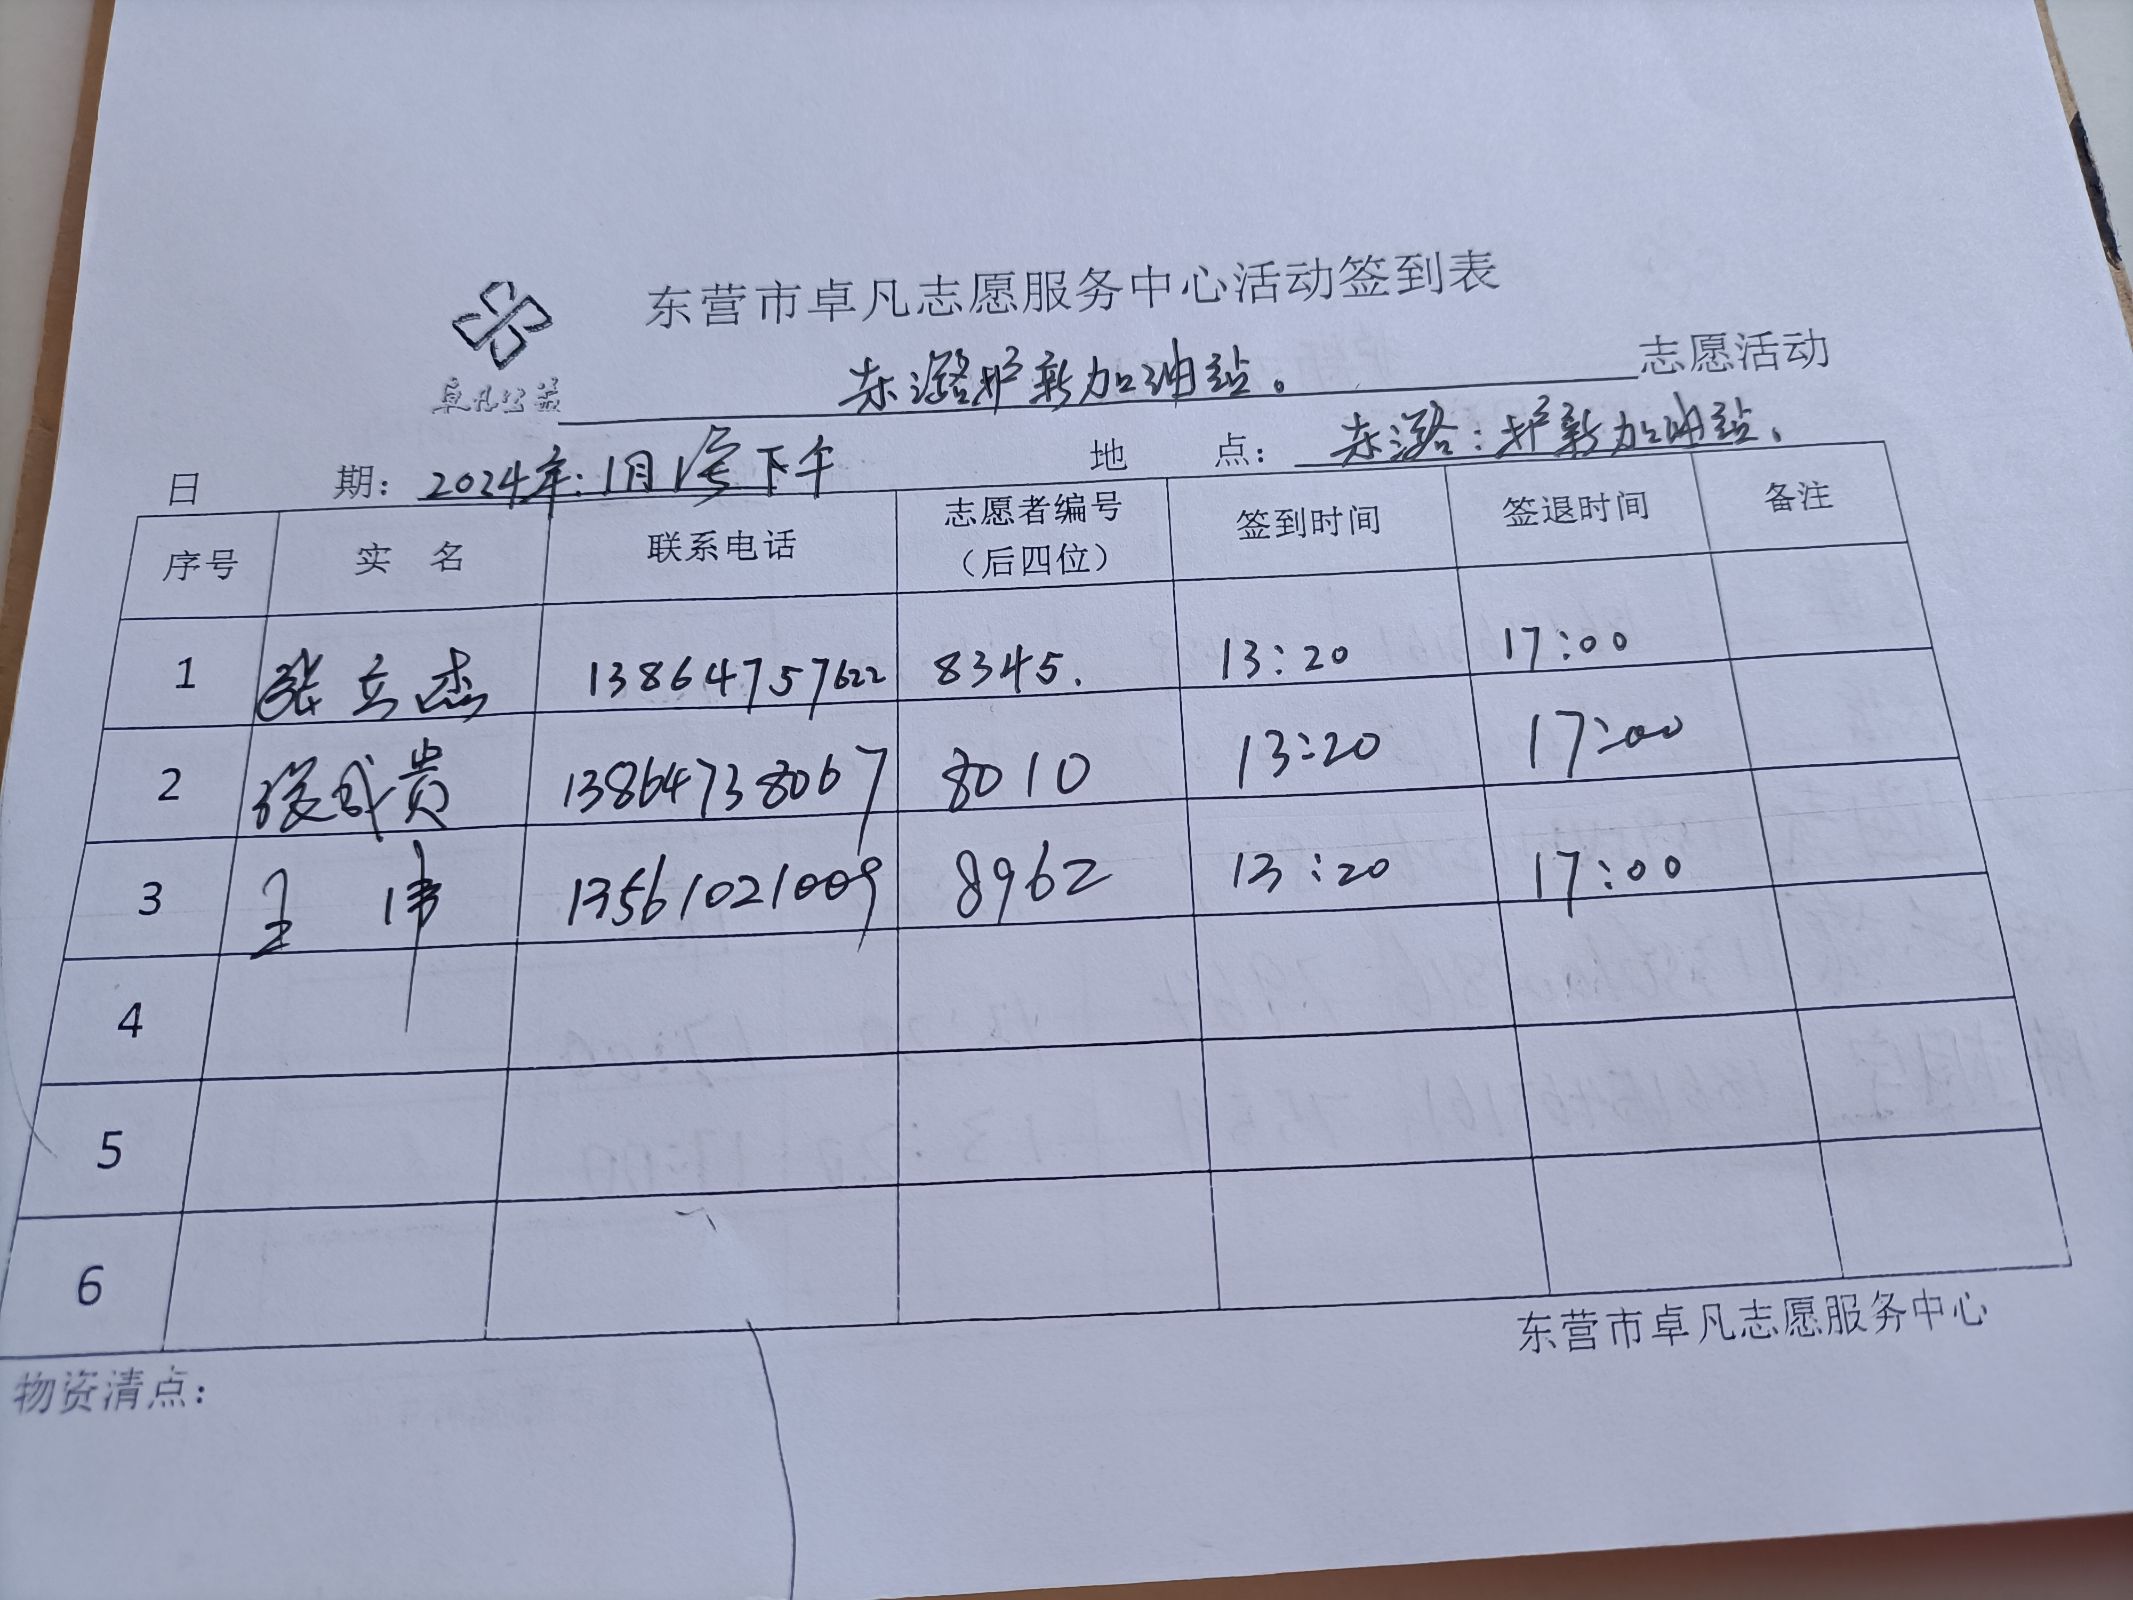 东营市卓凡志愿服务中心活动签到表
卓凡公益
东潞护新加油站。志愿活动
日期：2024年:1月1号下午 地点：东潞：护新加油站、
序号 实名 联系电话 志愿者编号（后四位） 签到时间 签退时间 备注
1 张立杰 13864757622 8345. 13:20 17:00
2 张成贵 13864738067 8010 13:20 17:00
3 王伟 13561021009 8962 13:20 17:00
4
5
6
东营市卓凡志愿服务中心
物资清点：